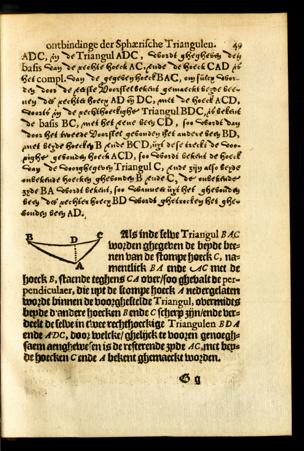 ontbindinge der Sphærische Triangulen. 49
ADC, in de Triangul ADC, wordt ghegheven den
basis van de rechte hoeck AC, ende de hoeck CAD is
het compl. van de gegeven hoeck BAC, om sulcx wor-
den door de eerste Voorstel bekent gemaeckt beyde bee-
nen des rechten hoecx AD en DC, met de hoeck ACD,
voorts in de rechthoeckighe Triangul BDC, is bekent
de basis BC, met het eene been CD, soo wordt dan
door het tweede Voorstel gevonden het ander been BD,
met beyde hoecken B ende BCD, uyt dese treckt de voo-
righe gevonden hoeck ACD, soo wordt bekent de hoeck
van de voorghegheven Triangul C, ende zijn also beyde
onbekende hoecken ghevonden B ende C, de onbekende
zyde BA wordt bekent, soo wanneer uyt het ghevonden
been des rechten hoecx BD wordt ghetrocken het ghe-
vonden been AD.
B D C
A
Als inde selve Triangul BAC
worden ghegeven de beyde bee-
nen van de stompe hoeck C, na-
mentlick BA ende AC met de
hoeck B, staende teghens CA over/soo ghevalt de per-
pendiculaer, die uyt de stompe hoeck A nedergelaten
wordt binnen de voorghestelde Triangul, overmidts
beyde d'andere hoecken B ende C scherp zijn/ende ver-
deelt de selve in twee rechthoeckige Triangulen BDA
ende ADC, door welcke/ ghelijck te vooren genoegh-
saem aenghewesen is de resterende zyde AC, met bey-
de hoecken C ende A bekent ghemaeckt worden.
G g